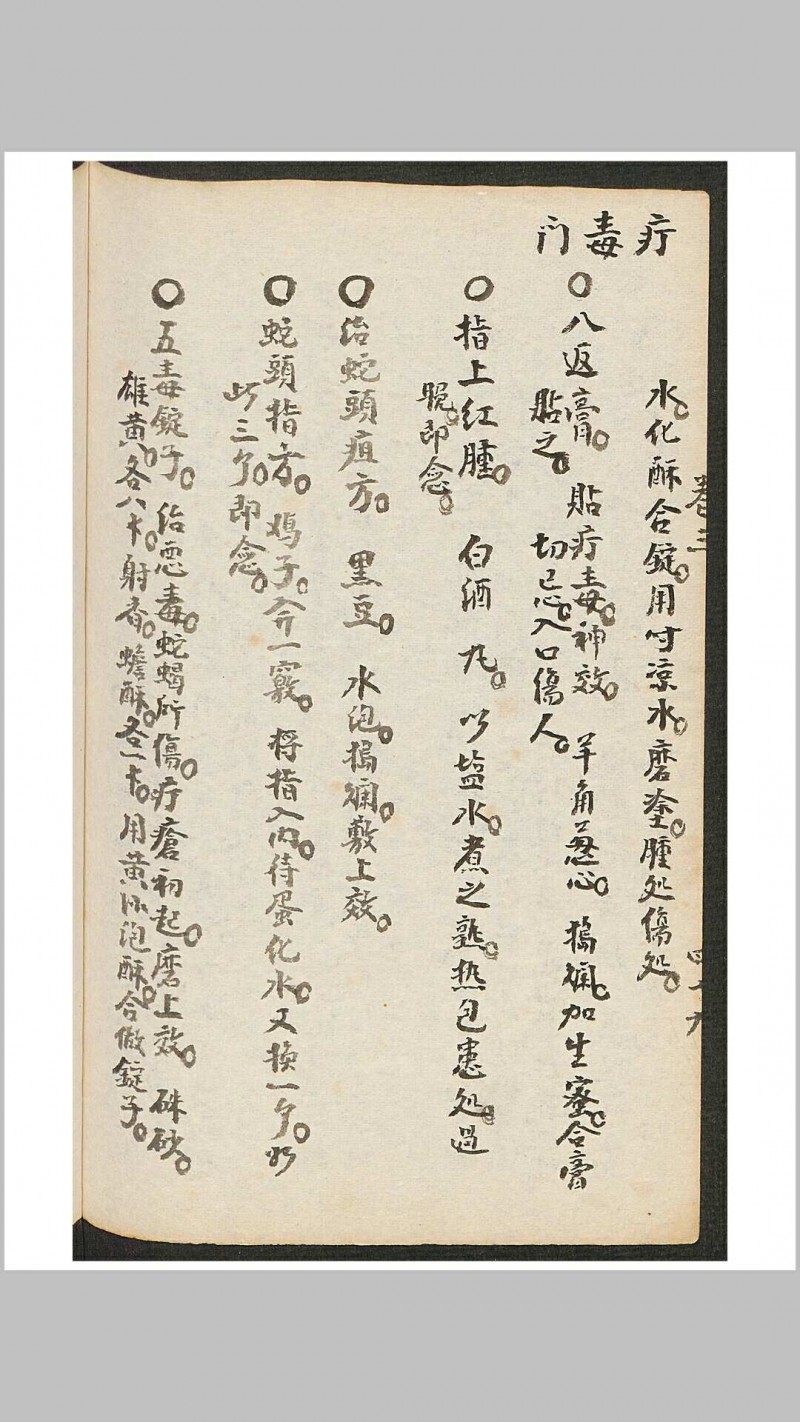 疔毒门
卷三
水。化酥合錠。用时凉水。磨塗。腫处傷处。
〇八返膏。貼疔毒。神效。羊角葱心。搗爛。加生蜜。合膏
貼之。切忌。入口傷人。
〇指上红腫。白酒 九。以塩水。煮之熟。热包患处。過
晚。即愈。
〇治蛇頭疽方。黑豆。水泡。搗爛。敷上效。
〇蛇頭指方。鸡子。開一竅。将指入内。待蛋化水。又换一个。如
此三个。即愈。
〇五毒錠子。治恶毒。蛇蝎所傷。疔瘡初起。磨上效。硃砂。
雄黄。各八卜。射香。蟾酥。各一卜。用黄水泡酥。合做錠子。